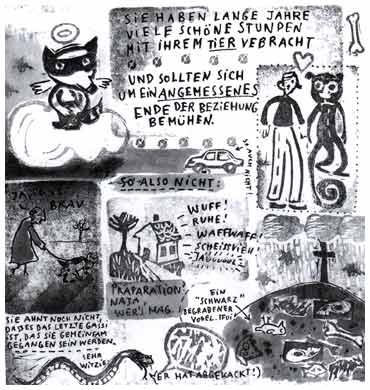 SIE HABEN LANGE JAHRE
VIELE SCHÖNE STUNDEN
MIT IHREM TIER VEBRACHT
UND SOLLTEN SICH
UM EIN ANGEMESSENES
ENDE DER BEZIEHUNG
BEMÜHEN.
SO AUCH NICHT!
SO ALSO NICHT:
BRAV
WUFF!
RUHE!
WAFFWAFF!
SCHEISSVIEH!
JAUUUUL
PRÄPARATION:
NAJA
WER'S MAG!
EIN
"SCHWARZ"
BEGRABENER
VOGEL. PFUI!
SIE AHNT NOCH NICHT,
DASS ES DAS LETZTE GASSI
IST, DAS SIE GEMEINSAM
GEGANGEN SEIN WERDEN.
SEHR
WITZIG!
(ER HAT ABGEKACKT!)